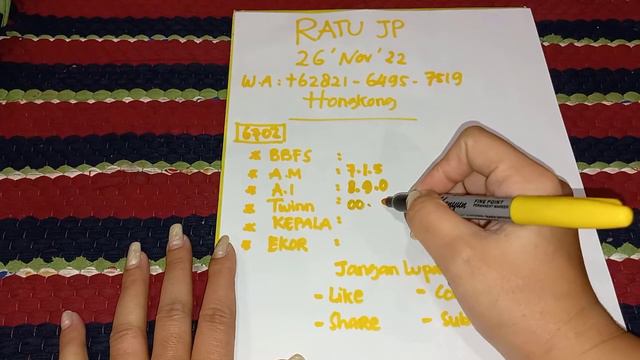 RATU JP
26 'Nov' 22
W.A : +62821 - 6495 - 7519
Hongkong
6702
* BBFS :
* A.M : 7.1.5
* A.I : 8.9.0
* Twinn : 00.
* KEPALA :
* EKOR :
Jangan Lupa
- Like
- Share
FINE POINT
PERMANENT MARKER